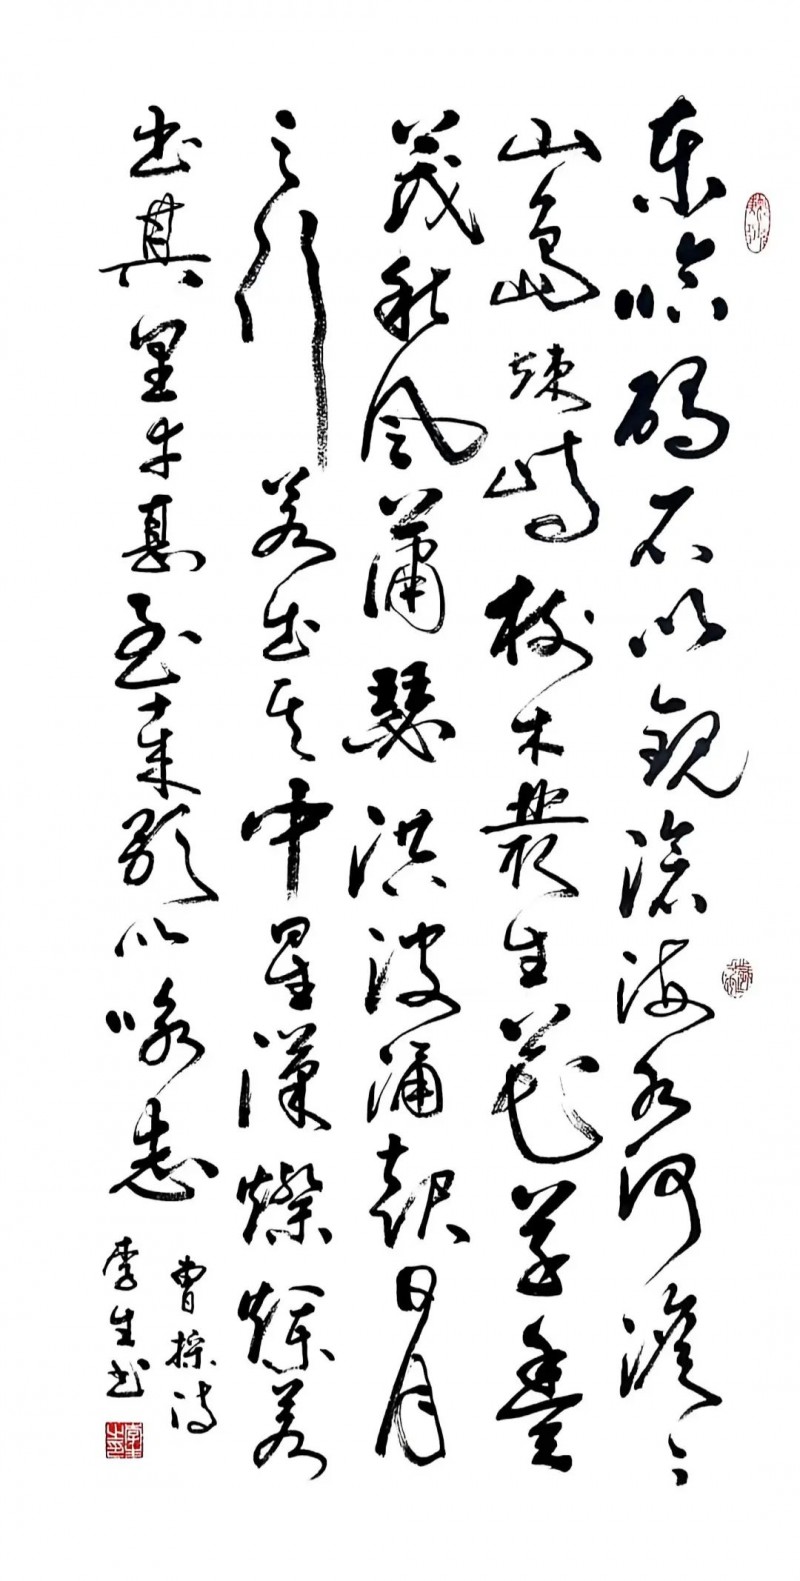 东临碣石以观滄海水何澹々
山岛竦峙树木叢生花草豐
茂秋风蕭瑟洪波涌起日月
之行若出其中星漢燦爛若
出其里幸甚至哉歌以咏志
曹操诗
李生书